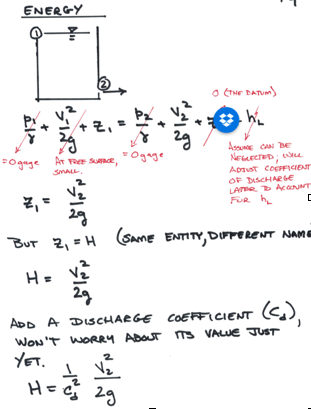 ENERGY
①
②
O (THE DATUM)
p₁/γ + V₁²/2g + z₁ = p₂/γ + V₂²/2g + hL
=0 gage
AT FREE SURFACE,
SMALL.
=0 gage
ASSUME CAN BE
NEGLECTED; WILL
ADJUST COEFFICIENT
OF DISCHARGE
LATER TO ACCOUNT
FOR hL
z₁ = V₂²/2g
BUT z₁ = H (SAME ENTITY, DIFFERENT NAME
H = V₂²/2g
ADD A DISCHARGE COEFFICIENT (Cd),
WON'T WORRY ABOUT ITS VALUE JUST
YET.
H = 1/Cd² V₂²/2g